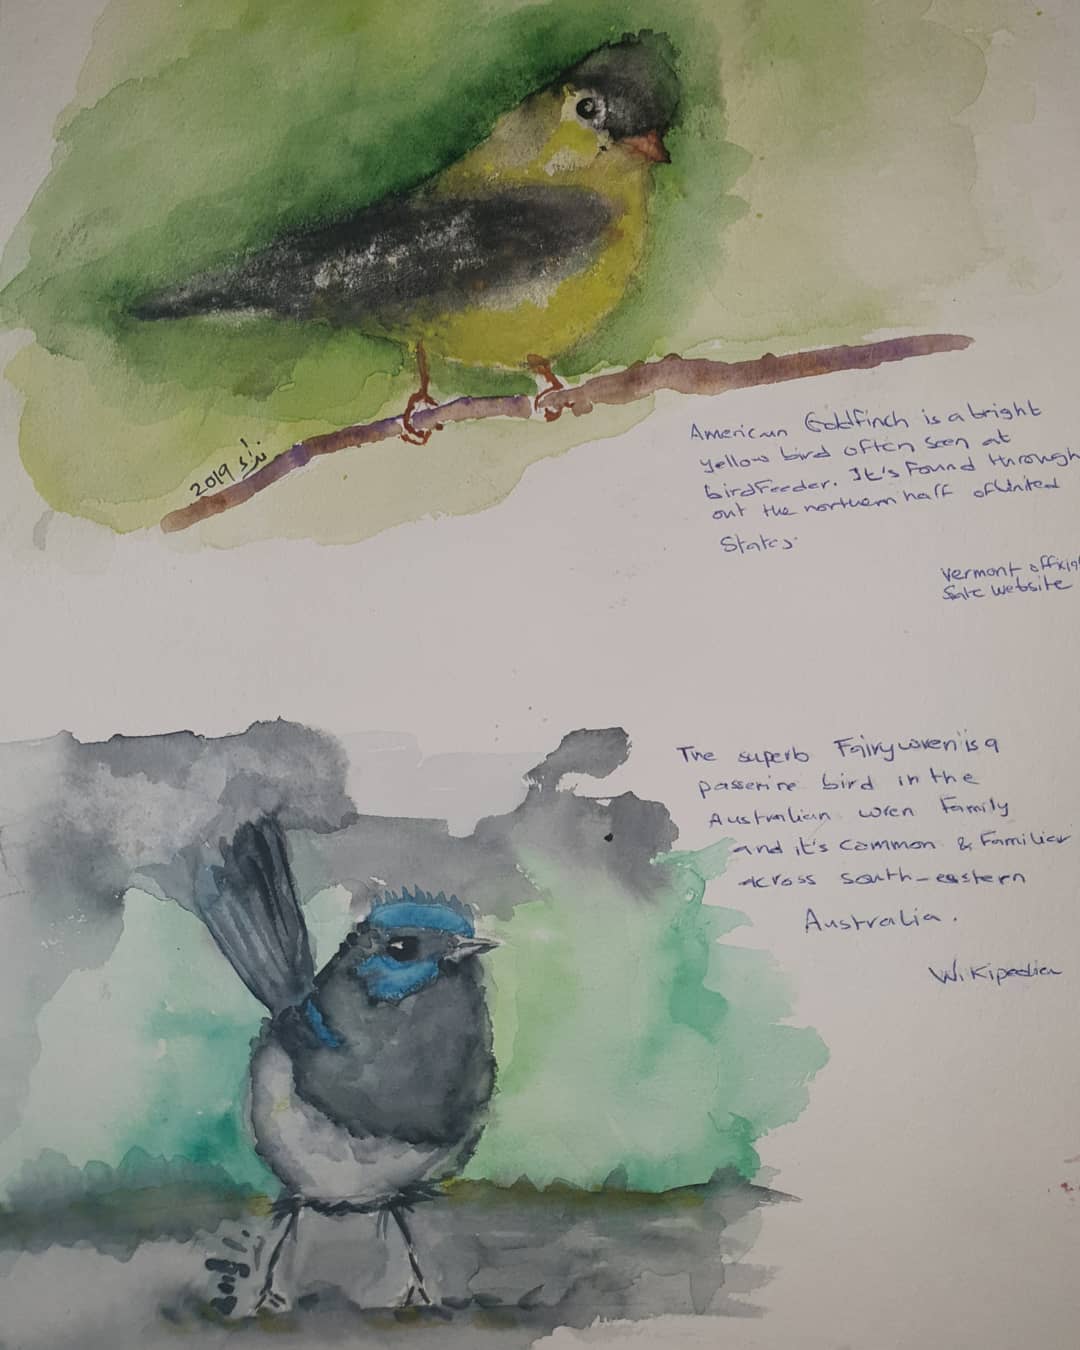 2019
American Goldfinch is a bright
yellow bird often seen at
birdfeeder. It's found through
out the northern half of United
States.
Vermont official
State website
The superb Fairywren is a
passerine bird in the
Australian wren Family
and it's common & Familier
across south-eastern
Australia.
Wikipedia